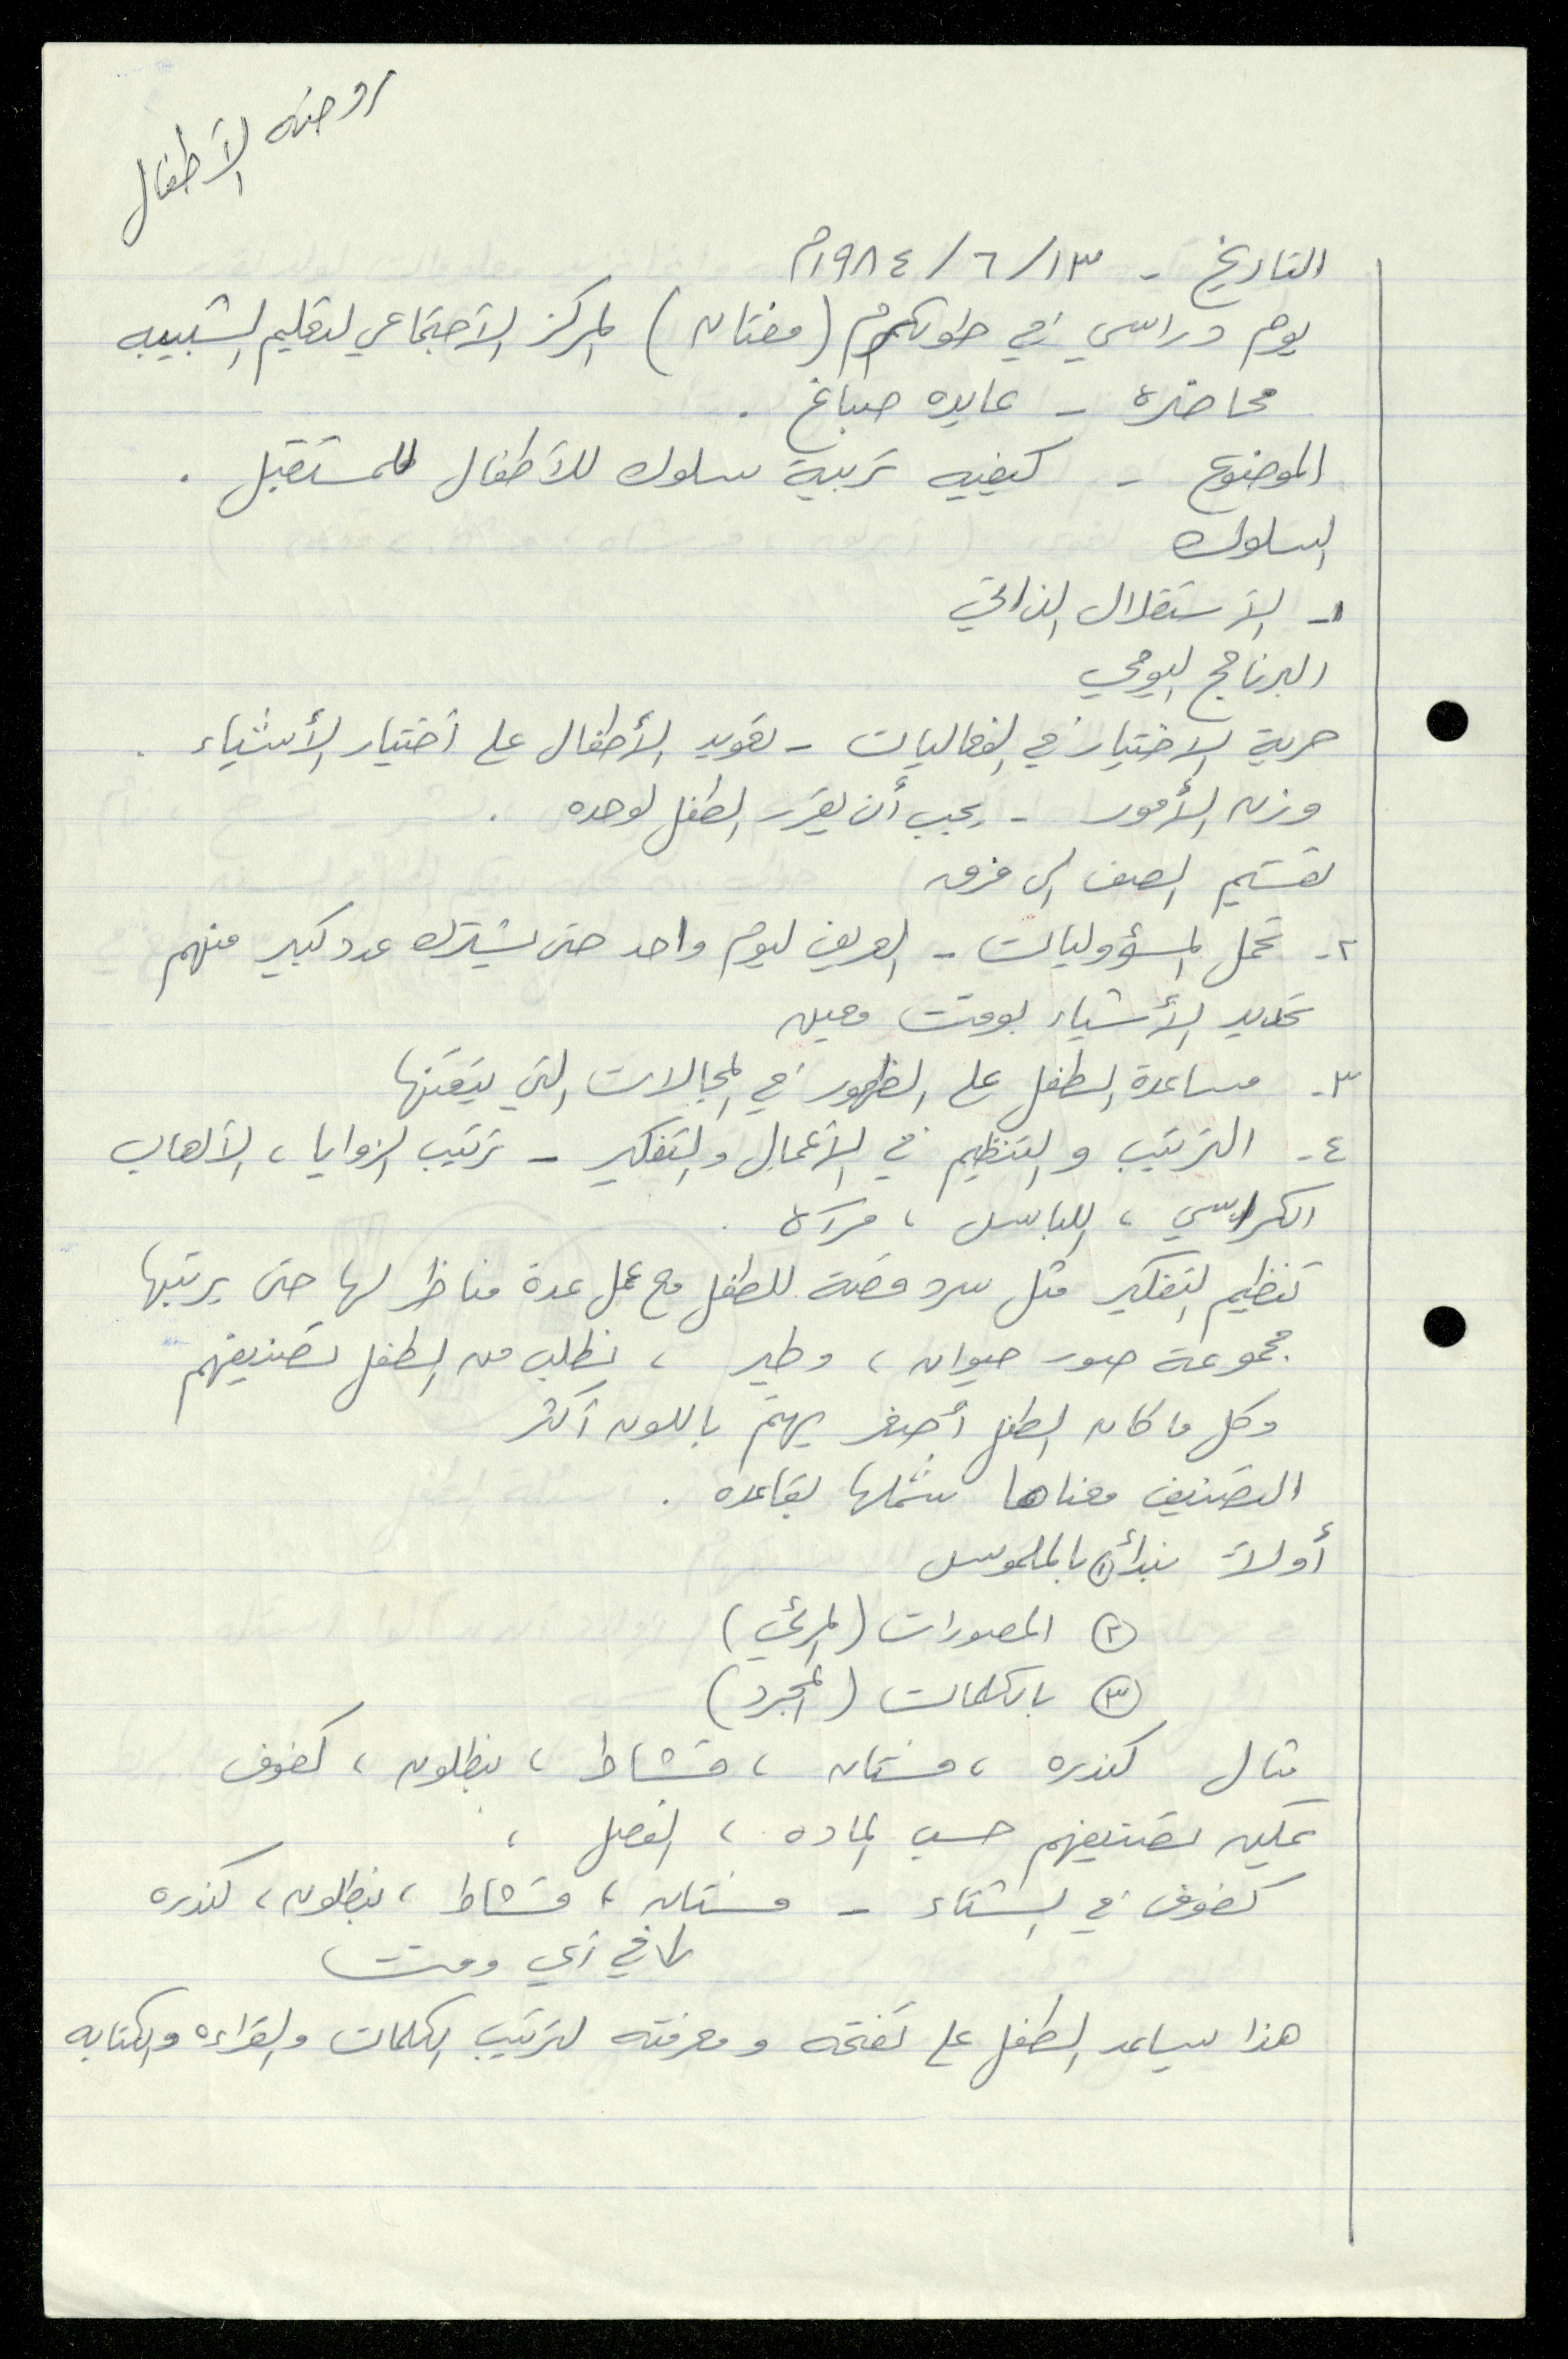 روضة الأطفال
التاريخ - ١٣/٦/١٩٨٤م
يوم دراسي في طولكرم (مفتان) المركز الأجتماعي لتعليم الشبيبه
محاضرة - عايده صباغ .
الموضوع - كيفيه تربية سلوك للأطفال للمستقبل .
السلوك
١- الأستقلال الذاتي
البرنامج اليومي
حرية الاختيار في الفعاليات - تعويد الأطفال على أختيار الأشياء .
وزن الأمور - يجب أن يقرر الطفل لوحده .
تقسيم الصف الى فرق
٢- تحمل المسؤوليات - العريف ليوم واحد حتى يشترك عدد كبير منهم
تحديد الأشياء بوقت معين
٣- مساعدة الطفل على الظهور في المجالات التي يتقنها
٤- الترتيب والتنظيم في الأعمال والتفكير - ترتيب الزوايا ، الألعاب
الكراسي ، اللباس ، مرآة .
تنظيم التفكير مثل سرد قصة للطفل مع عمل عدة مناظر لها حتى يرتبها
مجموعة صور حيوان ، وطير ، نطلب من الطفل تصنيفهم
وكل ما كان الطفل أصغر يهتم باللون أكثر
التصنيف معناها شملها بقاعده .
أولاً نبدأ ① بالملموس
② المصورات (المرئي)
③ بالكلمات (المجرد)
مثال كندره ، فستان ، قشاط ، بنطلون ، كفوف
يمكن تصنيفهم حسب الماده ، الفصل ،
كفوف في الشتاء - فستان ، قشاط ، بنطلون ، كندره
في أي وقت
هذا يساعد الطفل على تفتحه ومعرفته لترتيب الكلمات والقراءه والكتابه